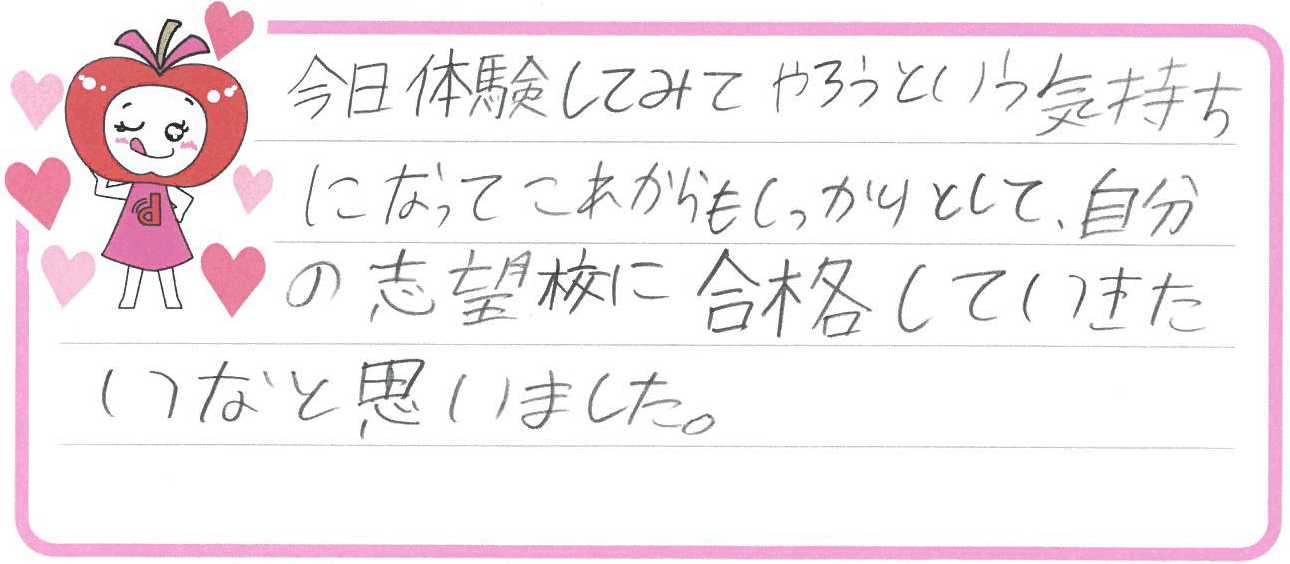 今日体験してみてやろうという気持ち
になってこれからもしっかりとして、自分
の志望校に合格していきた
いなと思いました。